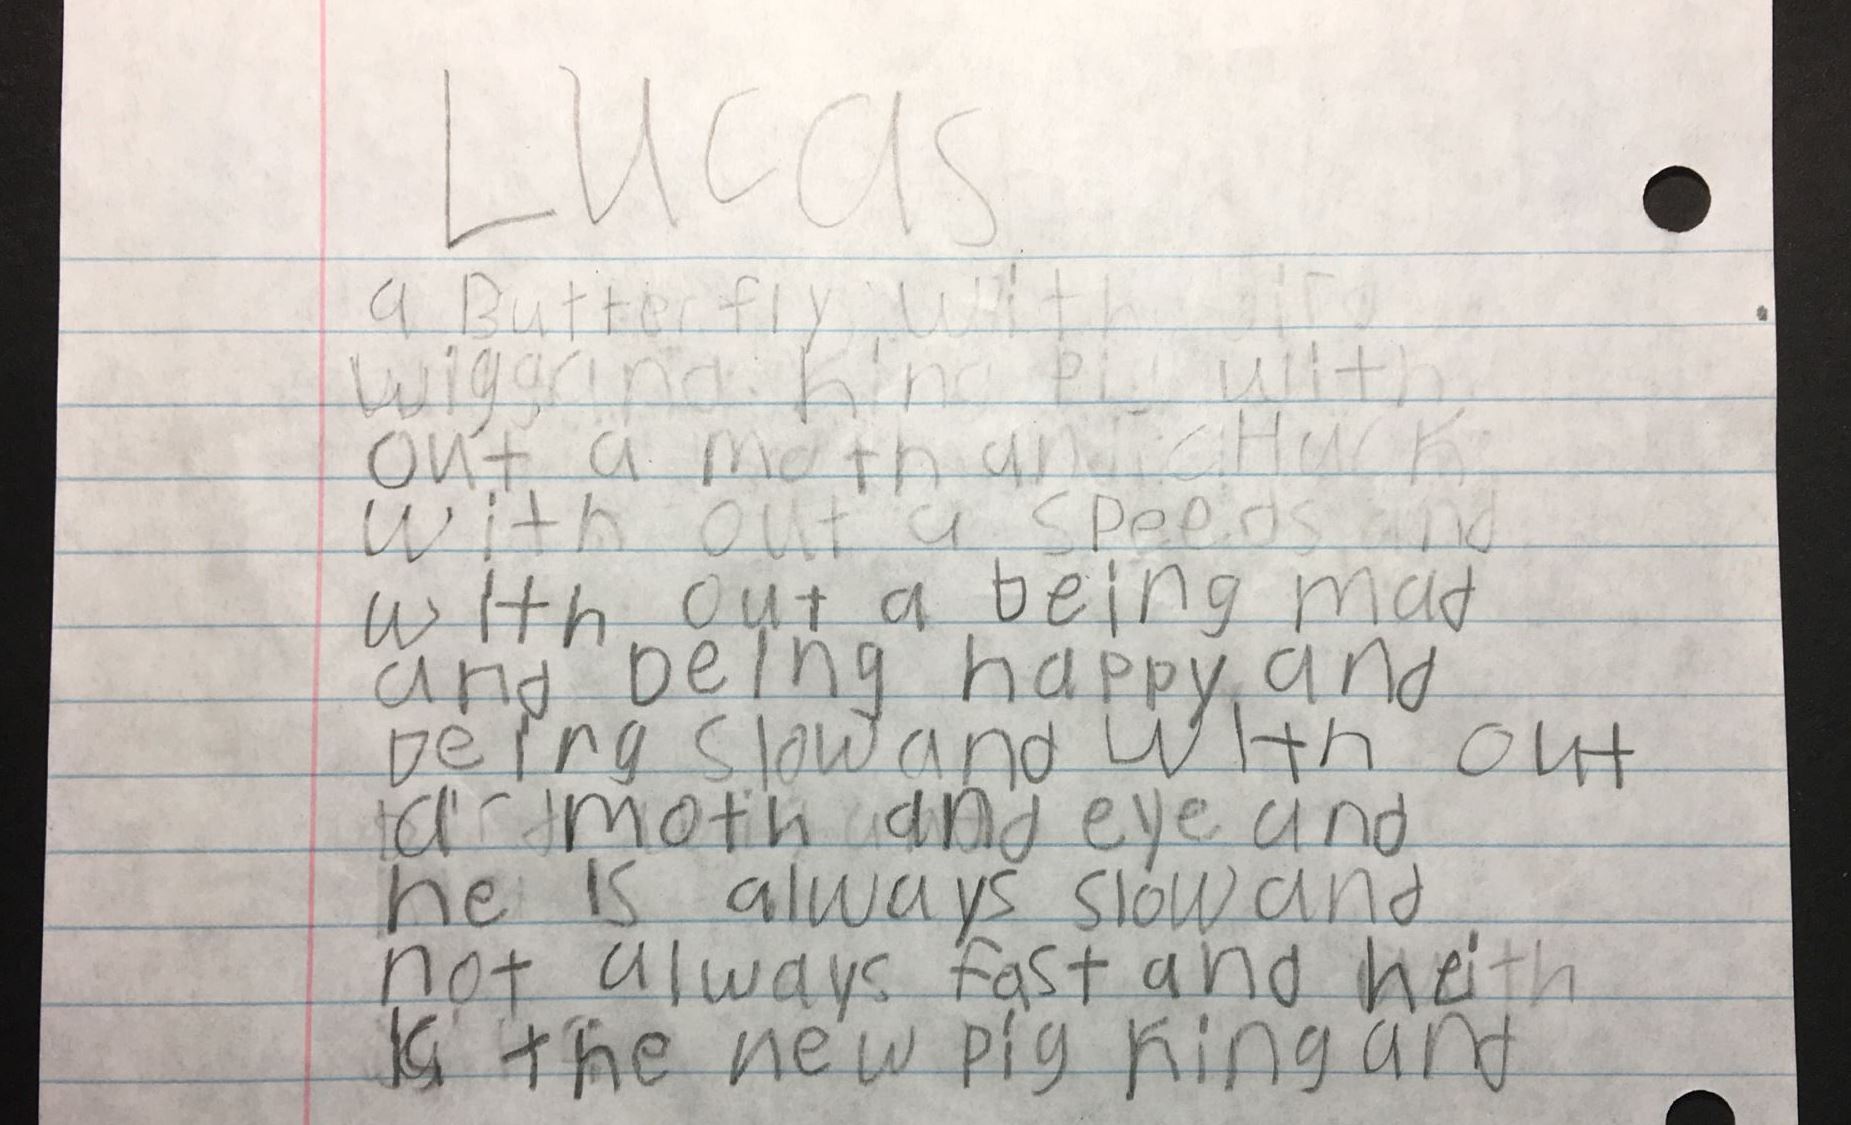 Lucas
a Butterfly with
with
out a moth and cHuck
with out a speeds and
with out a being mad
and being happy and
being slow and with out
a moth and eye and
he is always slow and
not always fast and he
is the new pig king and